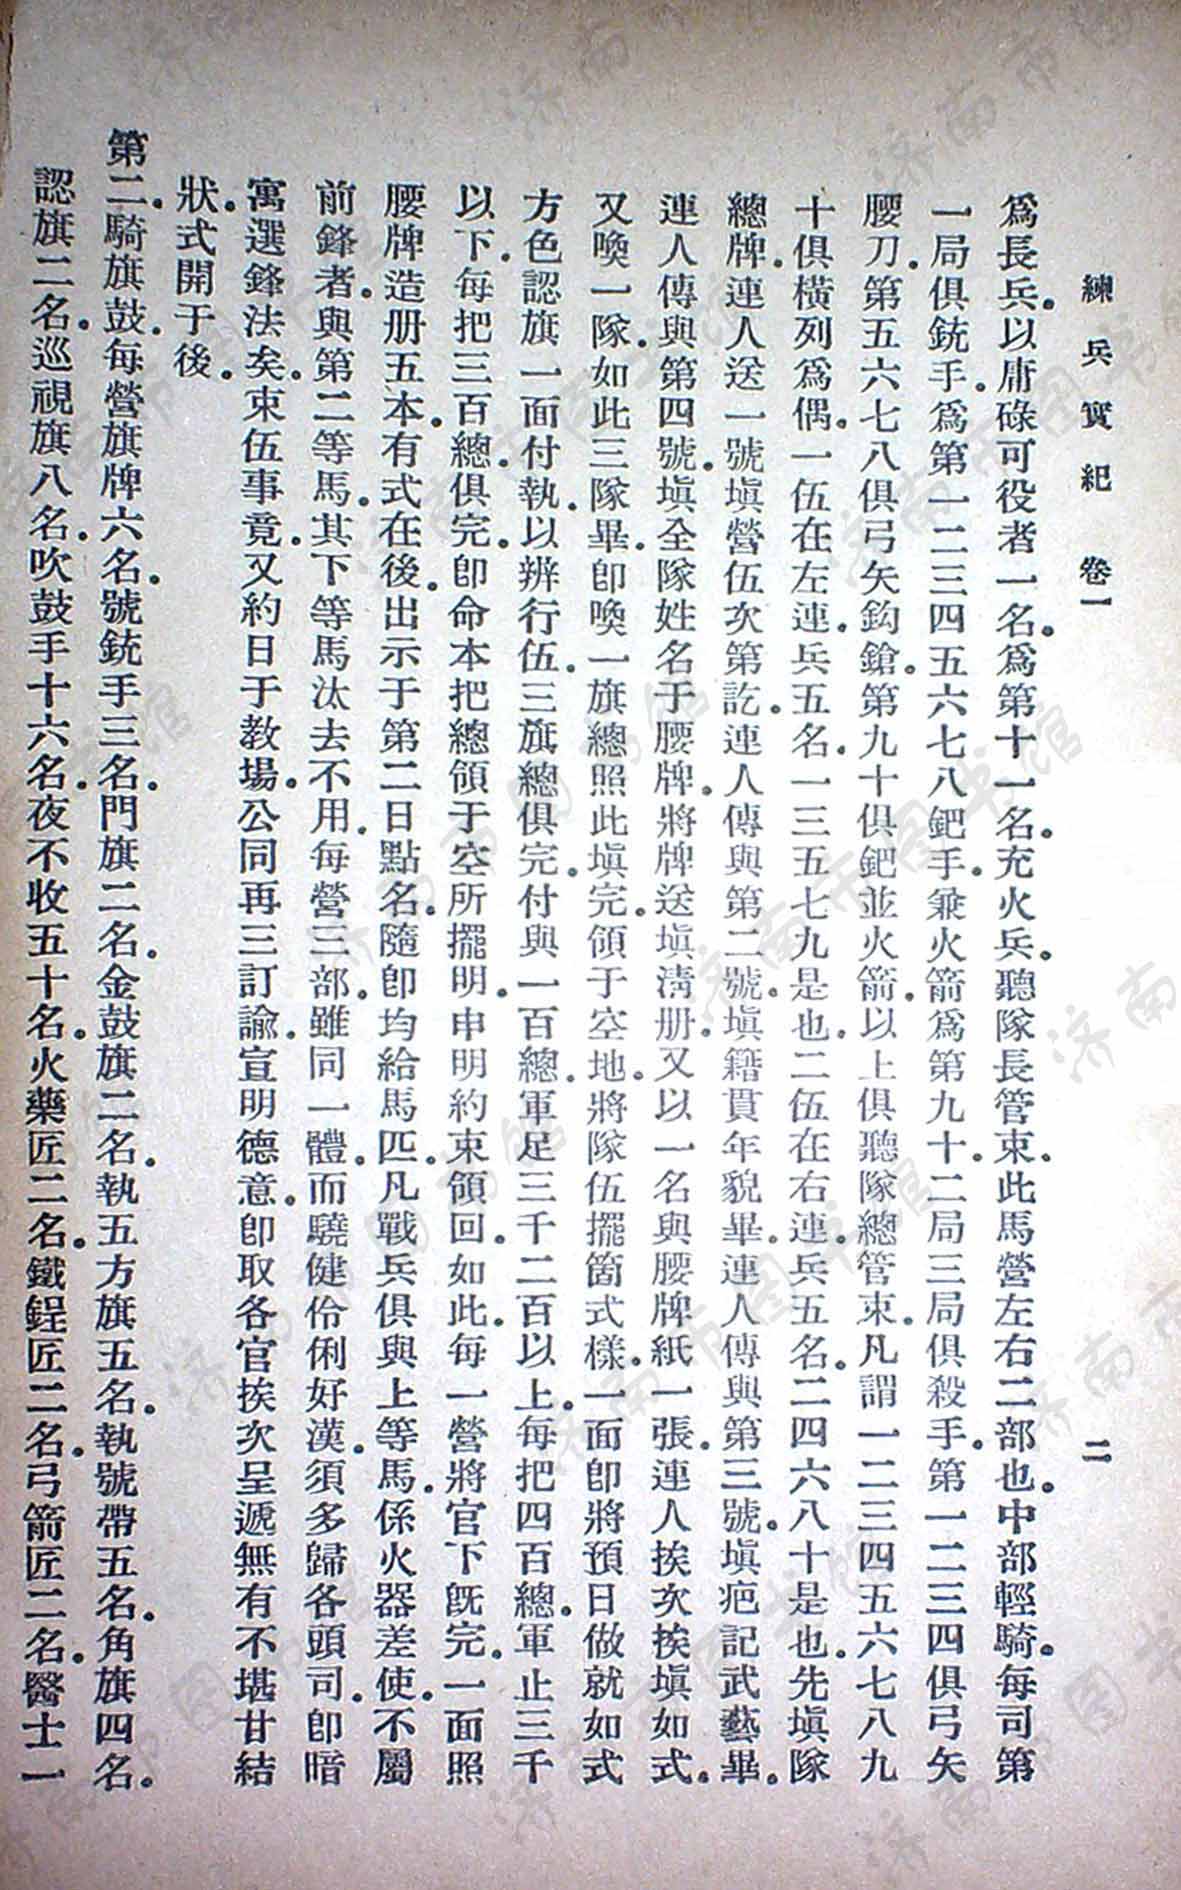 練兵實紀　卷一　二
爲長兵。以庸碌可役者一名。爲第十一名。充火兵。聽隊長管束。此馬營左右二部也。中部輕騎。每司第
一局俱銃手。爲第一二三四五六七八鈀手。兼火箭爲第九十。二局三局俱殺手。第一二三四俱弓矢
腰刀。第五六七八俱弓矢鈎鎗。第九十俱鈀並火箭。以上俱聽隊總管束。凡謂一二三四五六七八九
十俱橫列爲偶。一伍在左連。兵五名。一三五七九是也。二伍在右連。兵五名。二四六八十是也。先塡隊
總牌。連人送一號塡營伍次第訖。連人傳與第二號。塡籍貫年貌畢。連人傳與第三號。塡疤記武藝畢。
連人傳與第四號。塡全隊姓名于腰牌。將牌送塡淸册。又以一名與腰牌紙一張。連人挨次挨塡如式。
又喚一隊。如此三隊畢。卽喚一旗總照此塡完。領于空地。將隊伍擺箇式樣。一面卽將預日做就如式
方色認旗一面付執。以辨行伍。三旗總俱完。付與一百總。軍足三千二百以上。每把四百總。軍止三千
以下。每把三百總。俱完。卽命本把總領于空所擺明。申明約束領回。如此。每一營將官下旣完。一面照
腰牌造册五本。有式在後。出示于第二日點名。隨卽均給馬匹。凡戰兵俱與上等馬。係火器差使。不屬
前鋒者。與第二等馬。其下等馬汰去不用。每營三部。雖同一體。而驍健伶俐好漢。須多歸各頭司。卽暗
寓選鋒法矣。束伍事竟。又約日于敎場。公同再三訂諭。宣明德意。卽取各官挨次呈遞無有不堪甘結
狀。式開于後。
第二。騎旗鼓。每營旗牌六名。號銃手三名。門旗二名。金鼓旗二名。執五方旗五名。執號帶五名。角旗四名。
認旗二名。巡視旗八名。吹鼓手十六名。夜不收五十名。火藥匠二名。鐵鋥匠二名。弓箭匠二名。醫士一
济南市图书馆